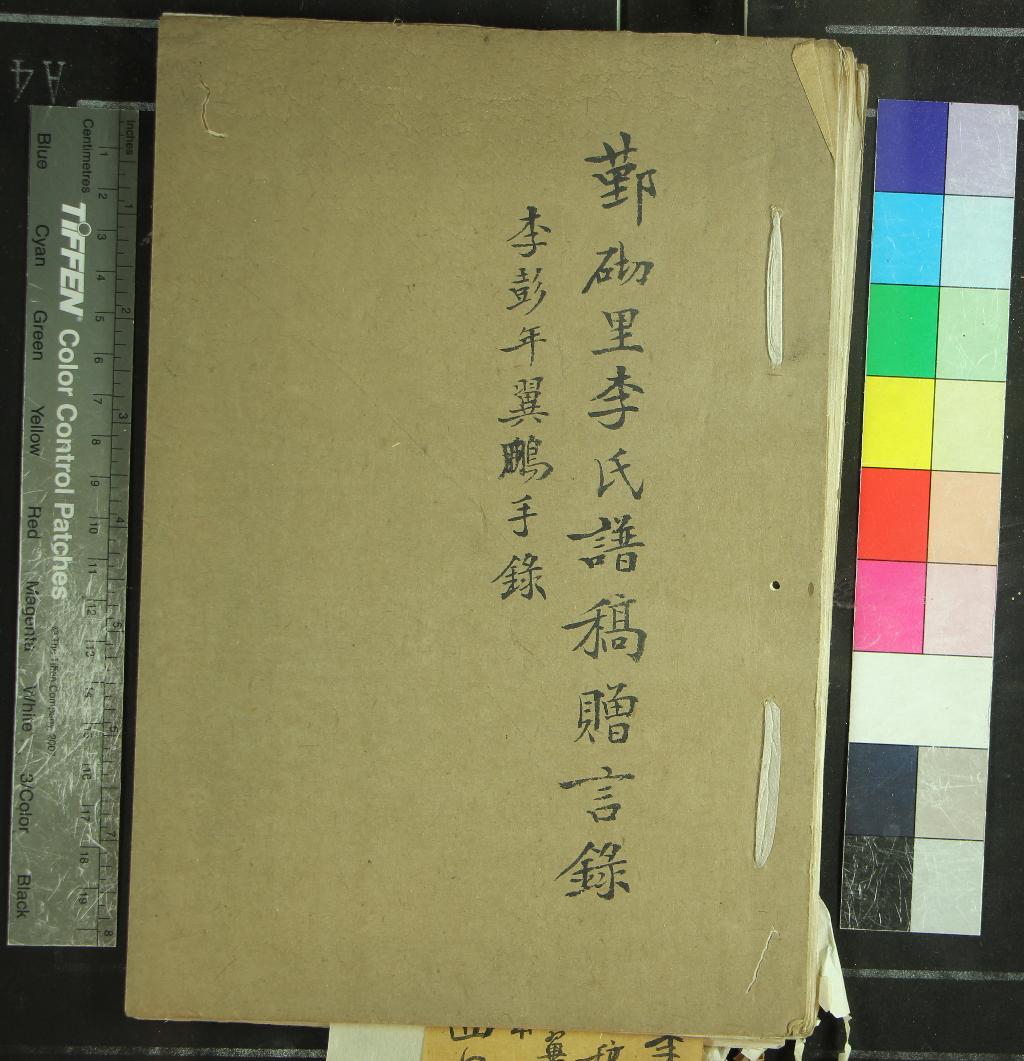 鄞砌里李氏譜稿贈言錄
李彭年翼鵬手錄
A4
Inches
Centimetres
TIFFEN Color Control Patches
©The Tiffen Company, 2007
Blue Cyan Green Yellow Red Magenta White 3/Color Black
1 2 3 4 5 6 7 8
1 2 3 4 5 6 7 8 9 10 11 12 13 14 15 16 17 18 19